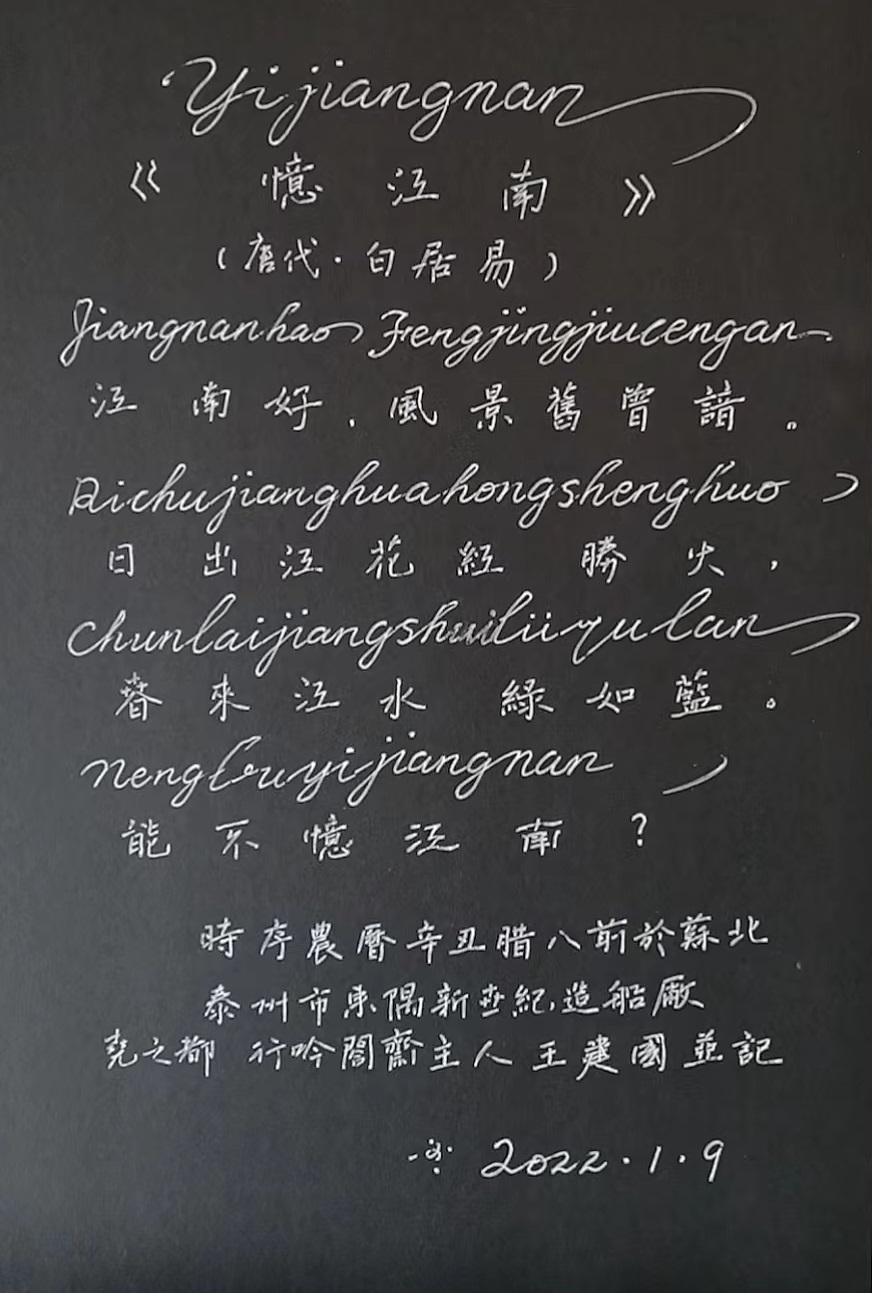 Yijiangnan
《憶江南》
（唐代·白居易）
Jiangnanhao Fengjingjiucengan
江南好，風景舊曾諳。
Richujianghuahongshenghuo
日出江花紅勝火，
chunlaijiangshuilüyulan
春來江水綠如藍。
nengbuyijiangnan
能不憶江南？
時序農曆辛丑腊八前於蘇北
泰州市東隅新世紀造船厰
堯之都 行吟閣齋主人王建國並記
2022.1.9